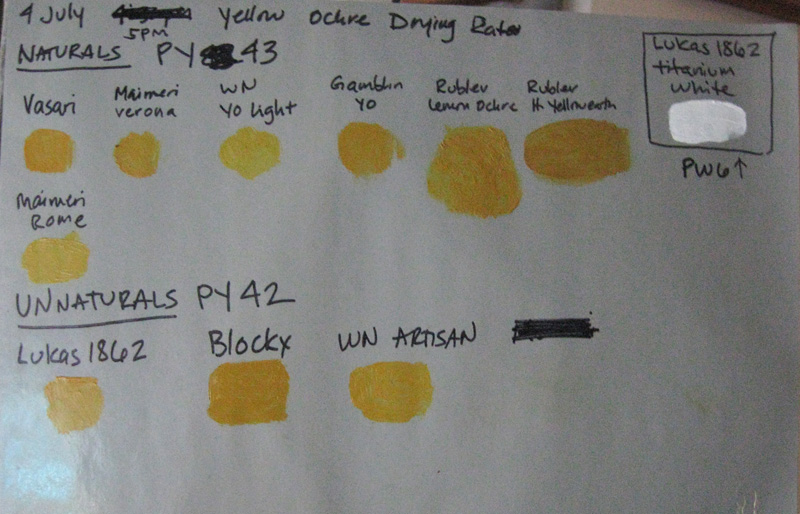 4 July 5PM Yellow Ochre Drying Rate
NATURALS PY 43
Vasari
Maimeri
verona
WN
YO light
Gamblin
YO
Rublev
Lemon Ochre
Rublev
It Yellow earth
Lukas 1862
titanium
White
PW6↑
Maimeri
Rome
UNNATURALS PY42
Lukas 1862
Blockx
WN ARTISAN